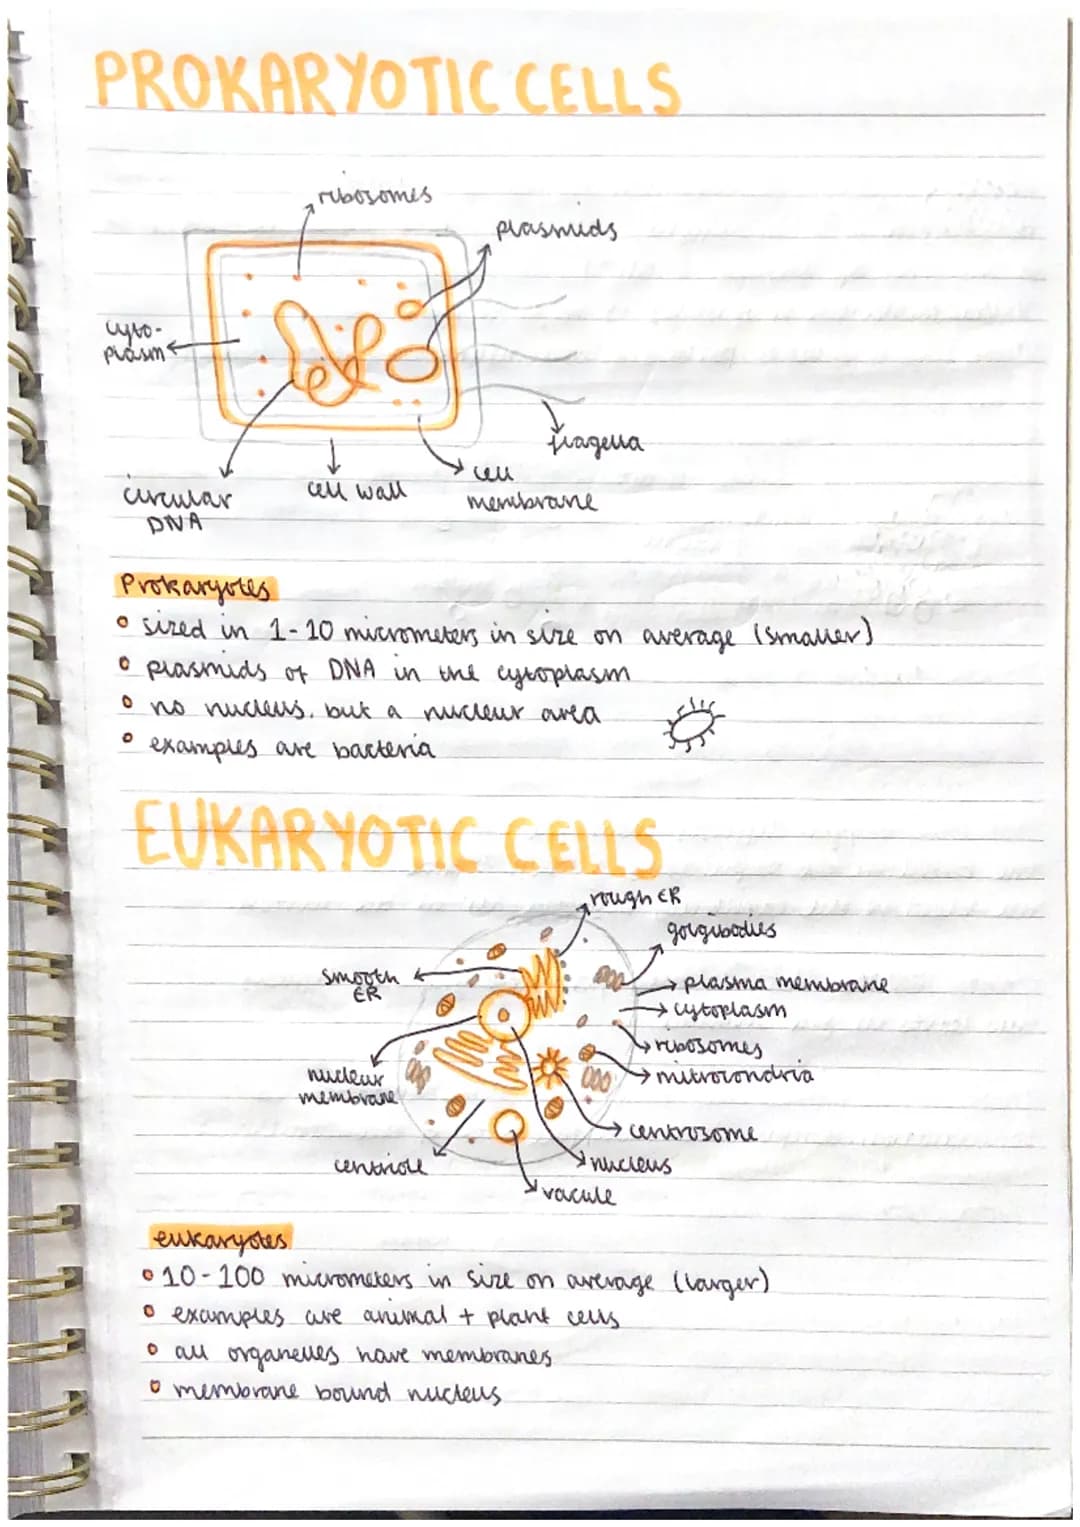 PROKARYOTIC CELLS
ribosomes
plasmids
cyto-
plasm
flagella
cell
membrane
cell wall
circular
DNA
Prokaryotes
• sized in 1-10 micrometers in size on average (smaller)
• plasmids of DNA in the cytoplasm
• no nucleus, but a nuclear area
• examples are bacteria
EUKARYOTIC CELLS
rough ER
golgibodies
smooth
ER
plasma membrane
cytoplasm
ribosomes
mitocondria
nuclear
membrane
centrosome
centriole
nucleus
vacule
eukaryotes
• 10-100 micrometers in size on average (larger)
• examples are animal + plant cells
• all organelles have membranes
• membrane bound nucleus